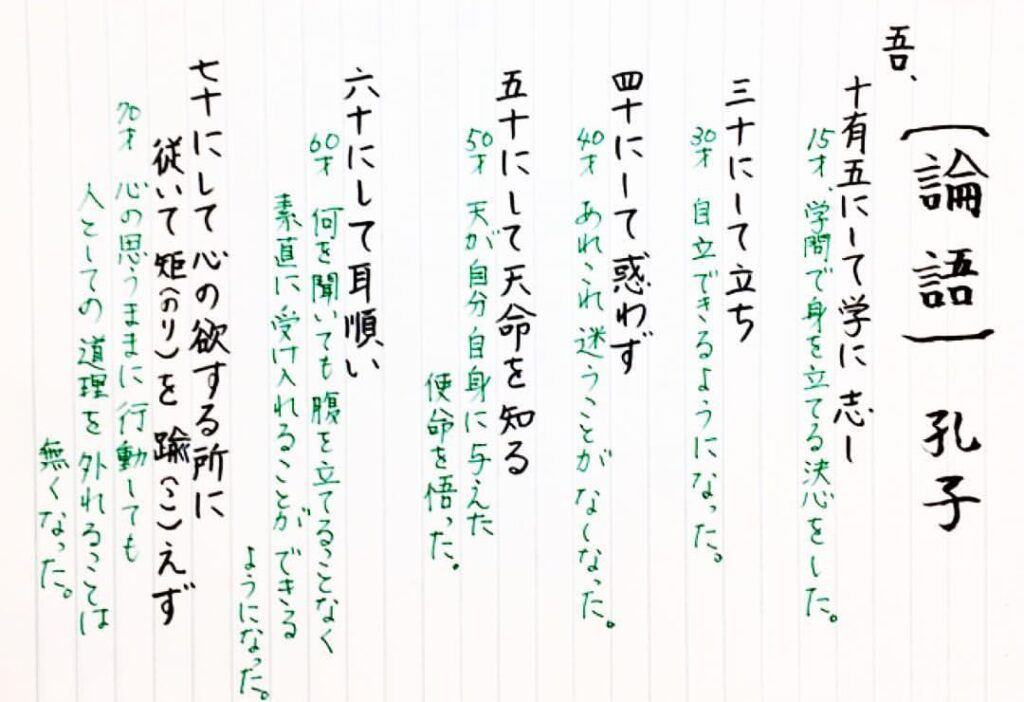 【論語】 孔子
吾、
十有五にして学に志し
15才、学問で身を立てる決心をした。
三十にして立ち
30才 自立できるようになった。
四十にして惑わず
40才 あれこれ迷うことがなくなった。
五十にして天命を知る
50才 天が自分自身に与えた
使命を悟った。
六十にして耳順い
60才 何を聞いても腹を立てることなく
素直に受け入れることができる
ようになった。
七十にして心の欲する所に
従いて矩(のり)を踰(こ)えず
70才 心の思うままに行動しても
人としての道理を外れることは
無くなった。